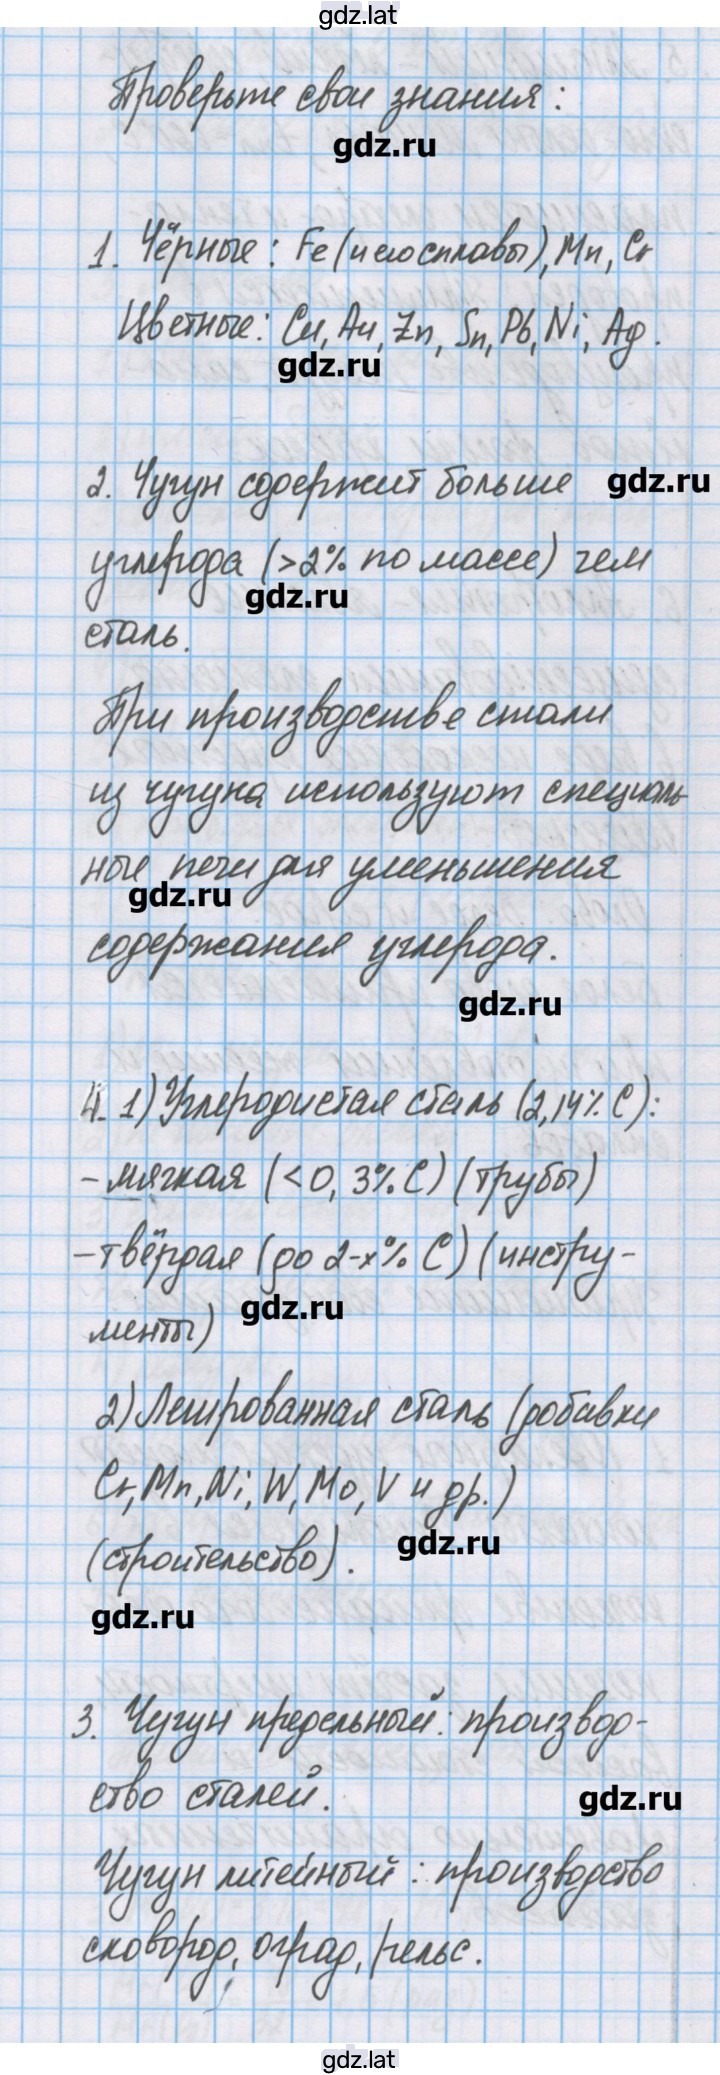 gdz.lat
Проверьте свои знания:
gdz.ru
1. Чёрные: Fe (и его сплавы), Mn, Cr
Цветные: Cu, Au, Zn, Sn, Pb, Ni, Ag.
gdz.ru
2. Чугун содержит больше
gdz.ru
углерода (>2% по массе) чем
gdz.ru
сталь.
При производстве стали
из чугуна используют специаль
ные печи для уменьшения
gdz.ru
содержания углерода.
gdz.ru
4. 1) Углеродистая сталь (2,14% C):
- мягкая (<0,3% C) (трубы)
- твёрдая (до 2-х% C) (инстру-
gdz.ru
менты)
2) Легированная сталь (добавки
Cr, Mn, Ni, W, Mo, V и др.)
gdz.ru
(строительство).
gdz.ru
3. Чугун предельный: производ-
ство сталей.
gdz.ru
Чугун литейный: производство
сковород, оград, рельс.
gdz.lat